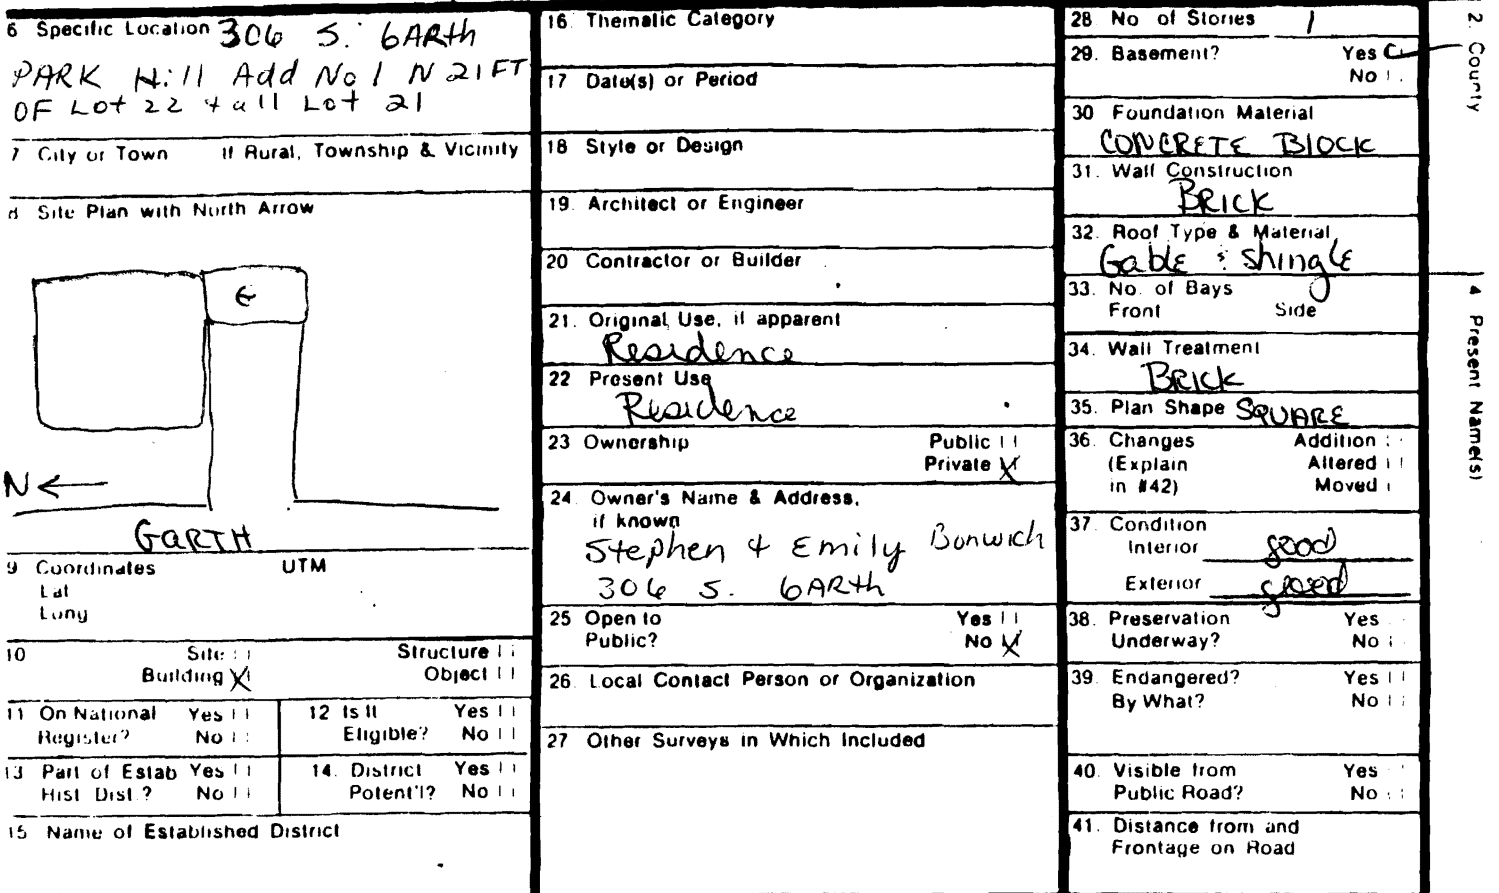 6 Specific Location 306 S. GARth
PARK Hill Add No 1 N 21 FT
OF Lot 22 + all Lot 21
7 City or Town If Rural, Township & Vicinity
8 Site Plan with North Arrow
E
N ←
GARTH
9 Coordinates UTM
Lat
Long
10 Site Structure
Building X Object
11 On National Register? Yes No
12 Is It Eligible? Yes No
13 Part of Estab Hist. Dist.? Yes No
14. District Potent'l? Yes No
15 Name of Established District
16. Thematic Category
17 Date(s) or Period
18 Style or Design
19. Architect or Engineer
20 Contractor or Builder
21. Original Use, if apparent
Residence
22 Present Use
Residence
23 Ownership Public
Private X
24. Owner's Name & Address,
if known
Stephen & Emily Bonwich
306 S. GARth
25 Open to Yes
Public? No X
26. Local Contact Person or Organization
27 Other Surveys in Which Included
28. No of Stories 1
29. Basement? Yes
No
30 Foundation Material
CONCRETE BLOCK
31. Wall Construction
BRICK
32. Roof Type & Material
Gable : Shingle
33. No. of Bays
Front Side
34. Wall Treatment
BRICK
35. Plan Shape SQUARE
36. Changes Addition
(Explain Altered
in #42) Moved
37. Condition
Interior good
Exterior good
38. Preservation Yes
Underway? No
39. Endangered? Yes
By What? No
40. Visible from Yes
Public Road? No
41. Distance from and
Frontage on Road
2. County
4 Present Name(s)